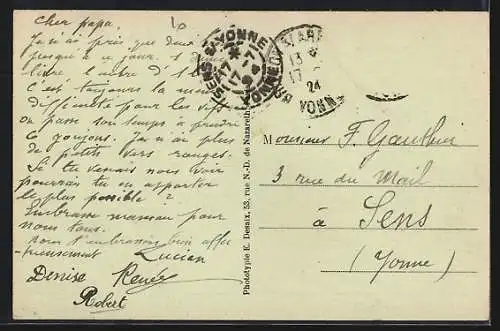 Cher papa.
Je n'ai pris que deux
jusqu'à ce jour. 1
livre l'autre d'1
C'est toujours la même
difficulté pour les vifs
on passe son temps à prendre
6 goujons. Je n'ai plus
de petits vers rouges.
Si tu venais nous voir
pourrais tu en apporter
le plus possible ?
Embrasse maman pour
nous tous.
nous t'embrassons bien affec
tueusement Lucien
Denise Renée
Robert
10
SENS S/YONNE
YONNE
17
24
YONNE
Phototypie E. Desaix, 53, rue N.-D. de Nazareth
Monsieur F. Gauthier
3 rue du Mail
à Sens
(Yonne)